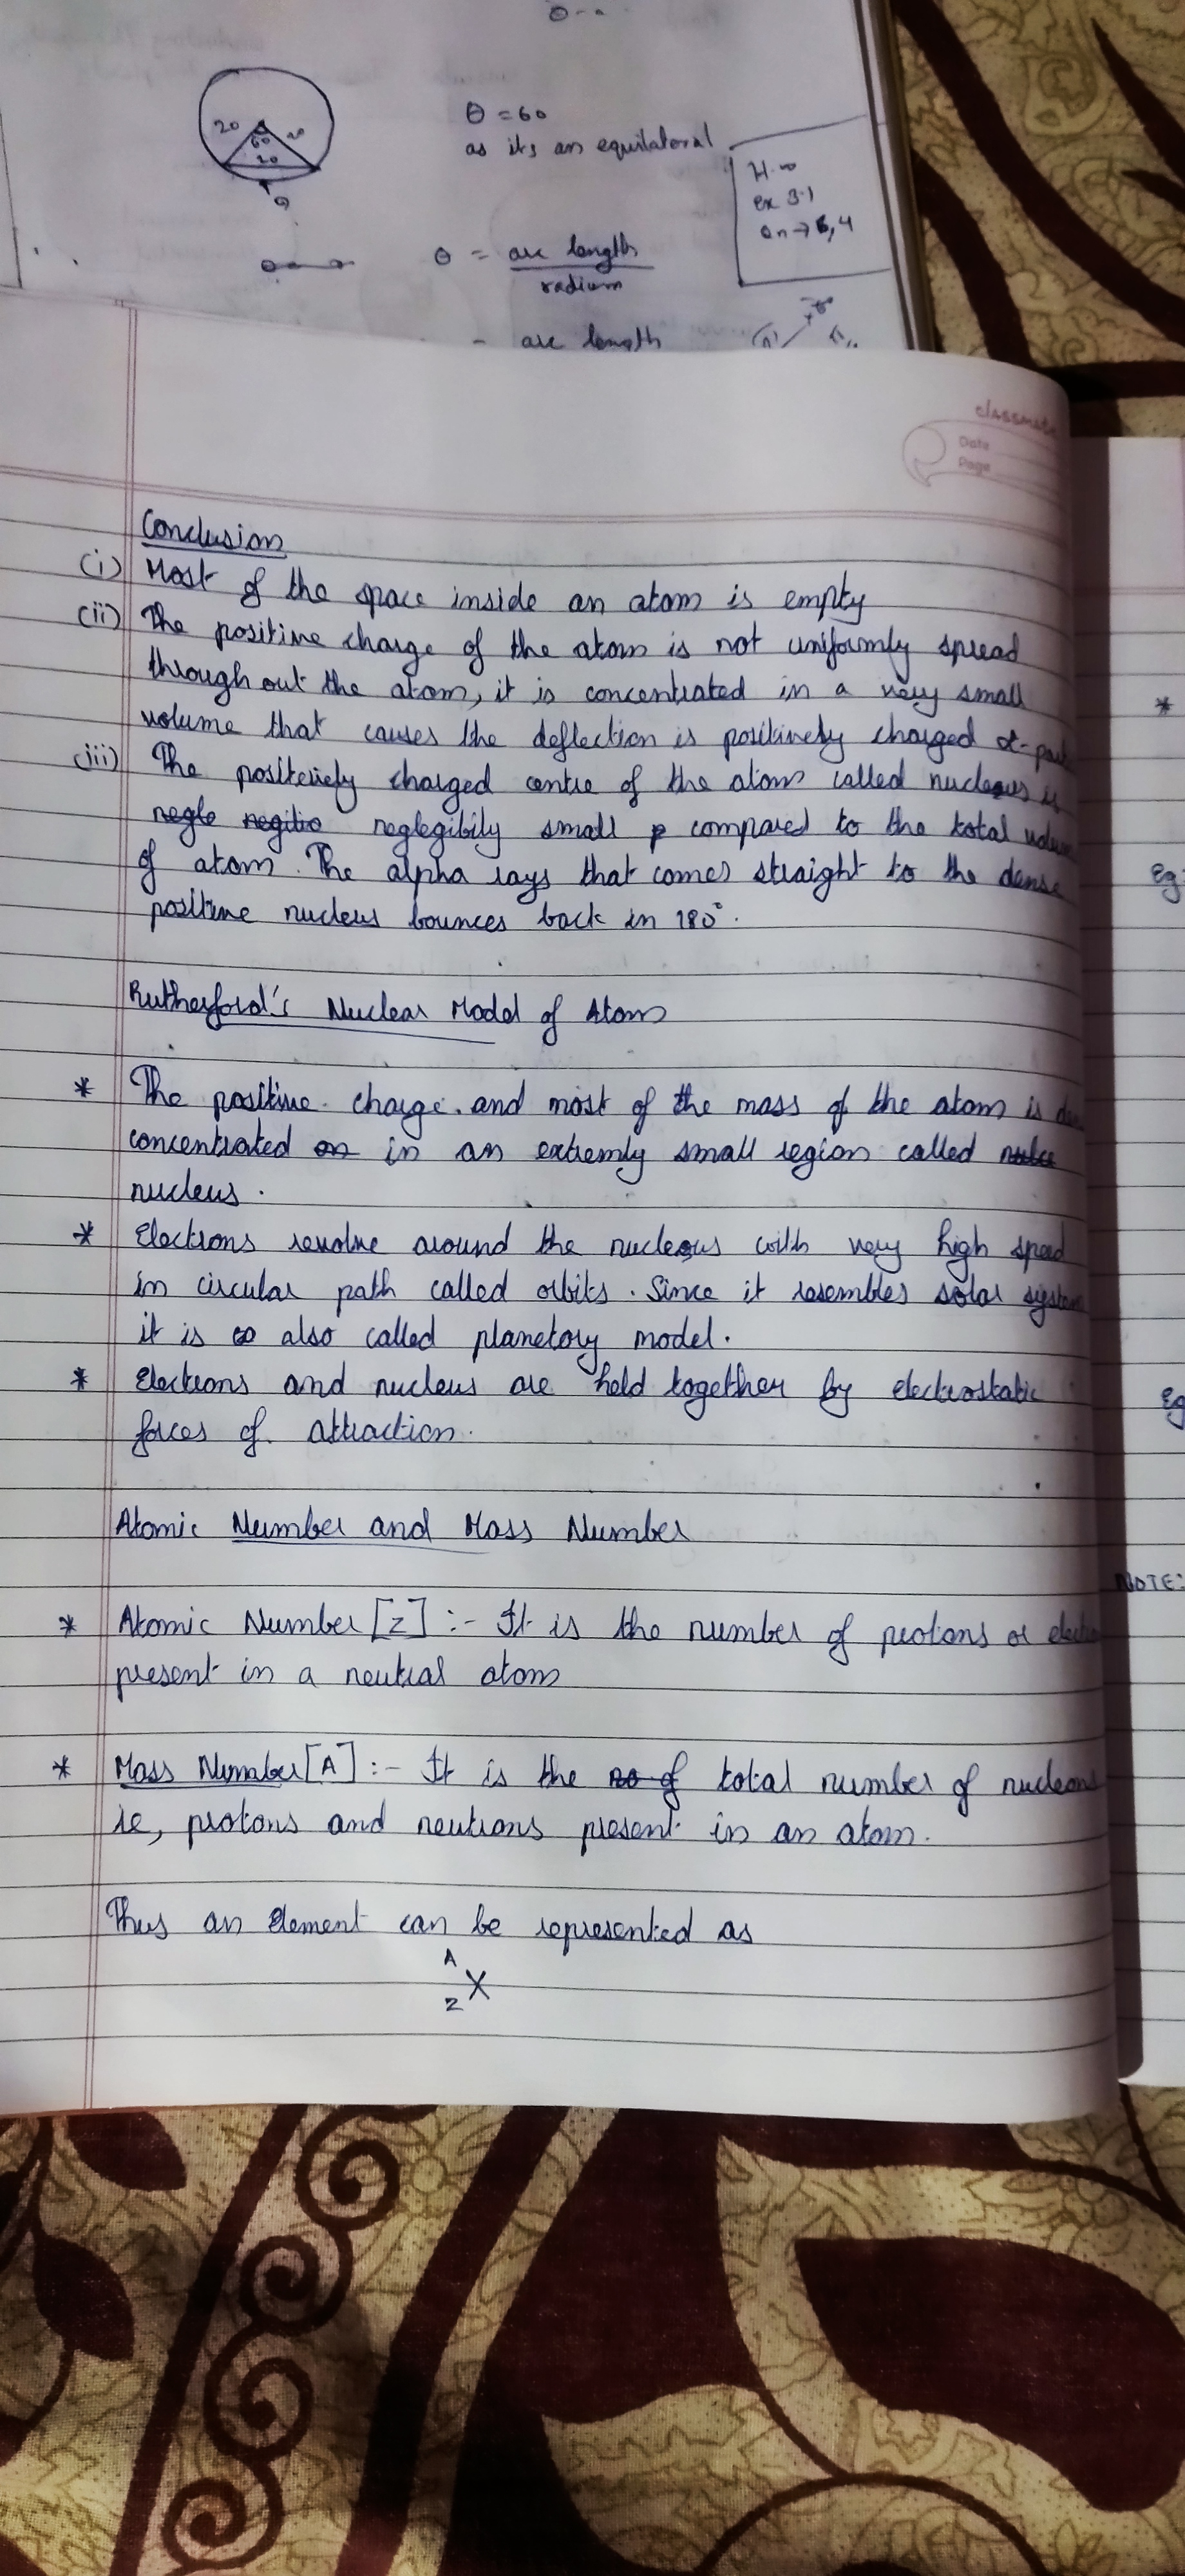 20 20
60
20
θ = 60
as its an equilateral
H.w
ex 3.1
Qn → 6, 4
θ = arc length
radium
= arc length
classmate
Date
Page
Conclusion
(i) Most of the space inside an atom is empty
(ii) The positive charge of the atom is not uniformly spread
through out the atom, it is concentrated in a very small
volume that causes the deflection is positively charged α-
(iii) The positeviely charged centre of the atom called nucleus is
neglegibily small compared to the total
of atom. The alpha rays that comes straight to the dense
positive nucleus bounces back in 180°.
Rutherford's Nuclear Model of Atom
* The positive charge and most of the mass of the atom is
concentrated in an extremly small region called
nucleus.
* Electrons revolve around the nucleus with very high speed
in circular path called orbits. Since it resembles solar system
it is also called planetory model.
* Electrons and nucleus are held together by electrostatic
forces of attraction.
Atomic Number and Mass Number
* Atomic Number [Z] :- It is the number of protons or
present in a neutral atom
* Mass Number [A] :- It is the total number of nucleons
ie, protons and neutrons present in an atom.
Thus an element can be represented as
A
X
Z
*
Eg:
Eg
NOTE: